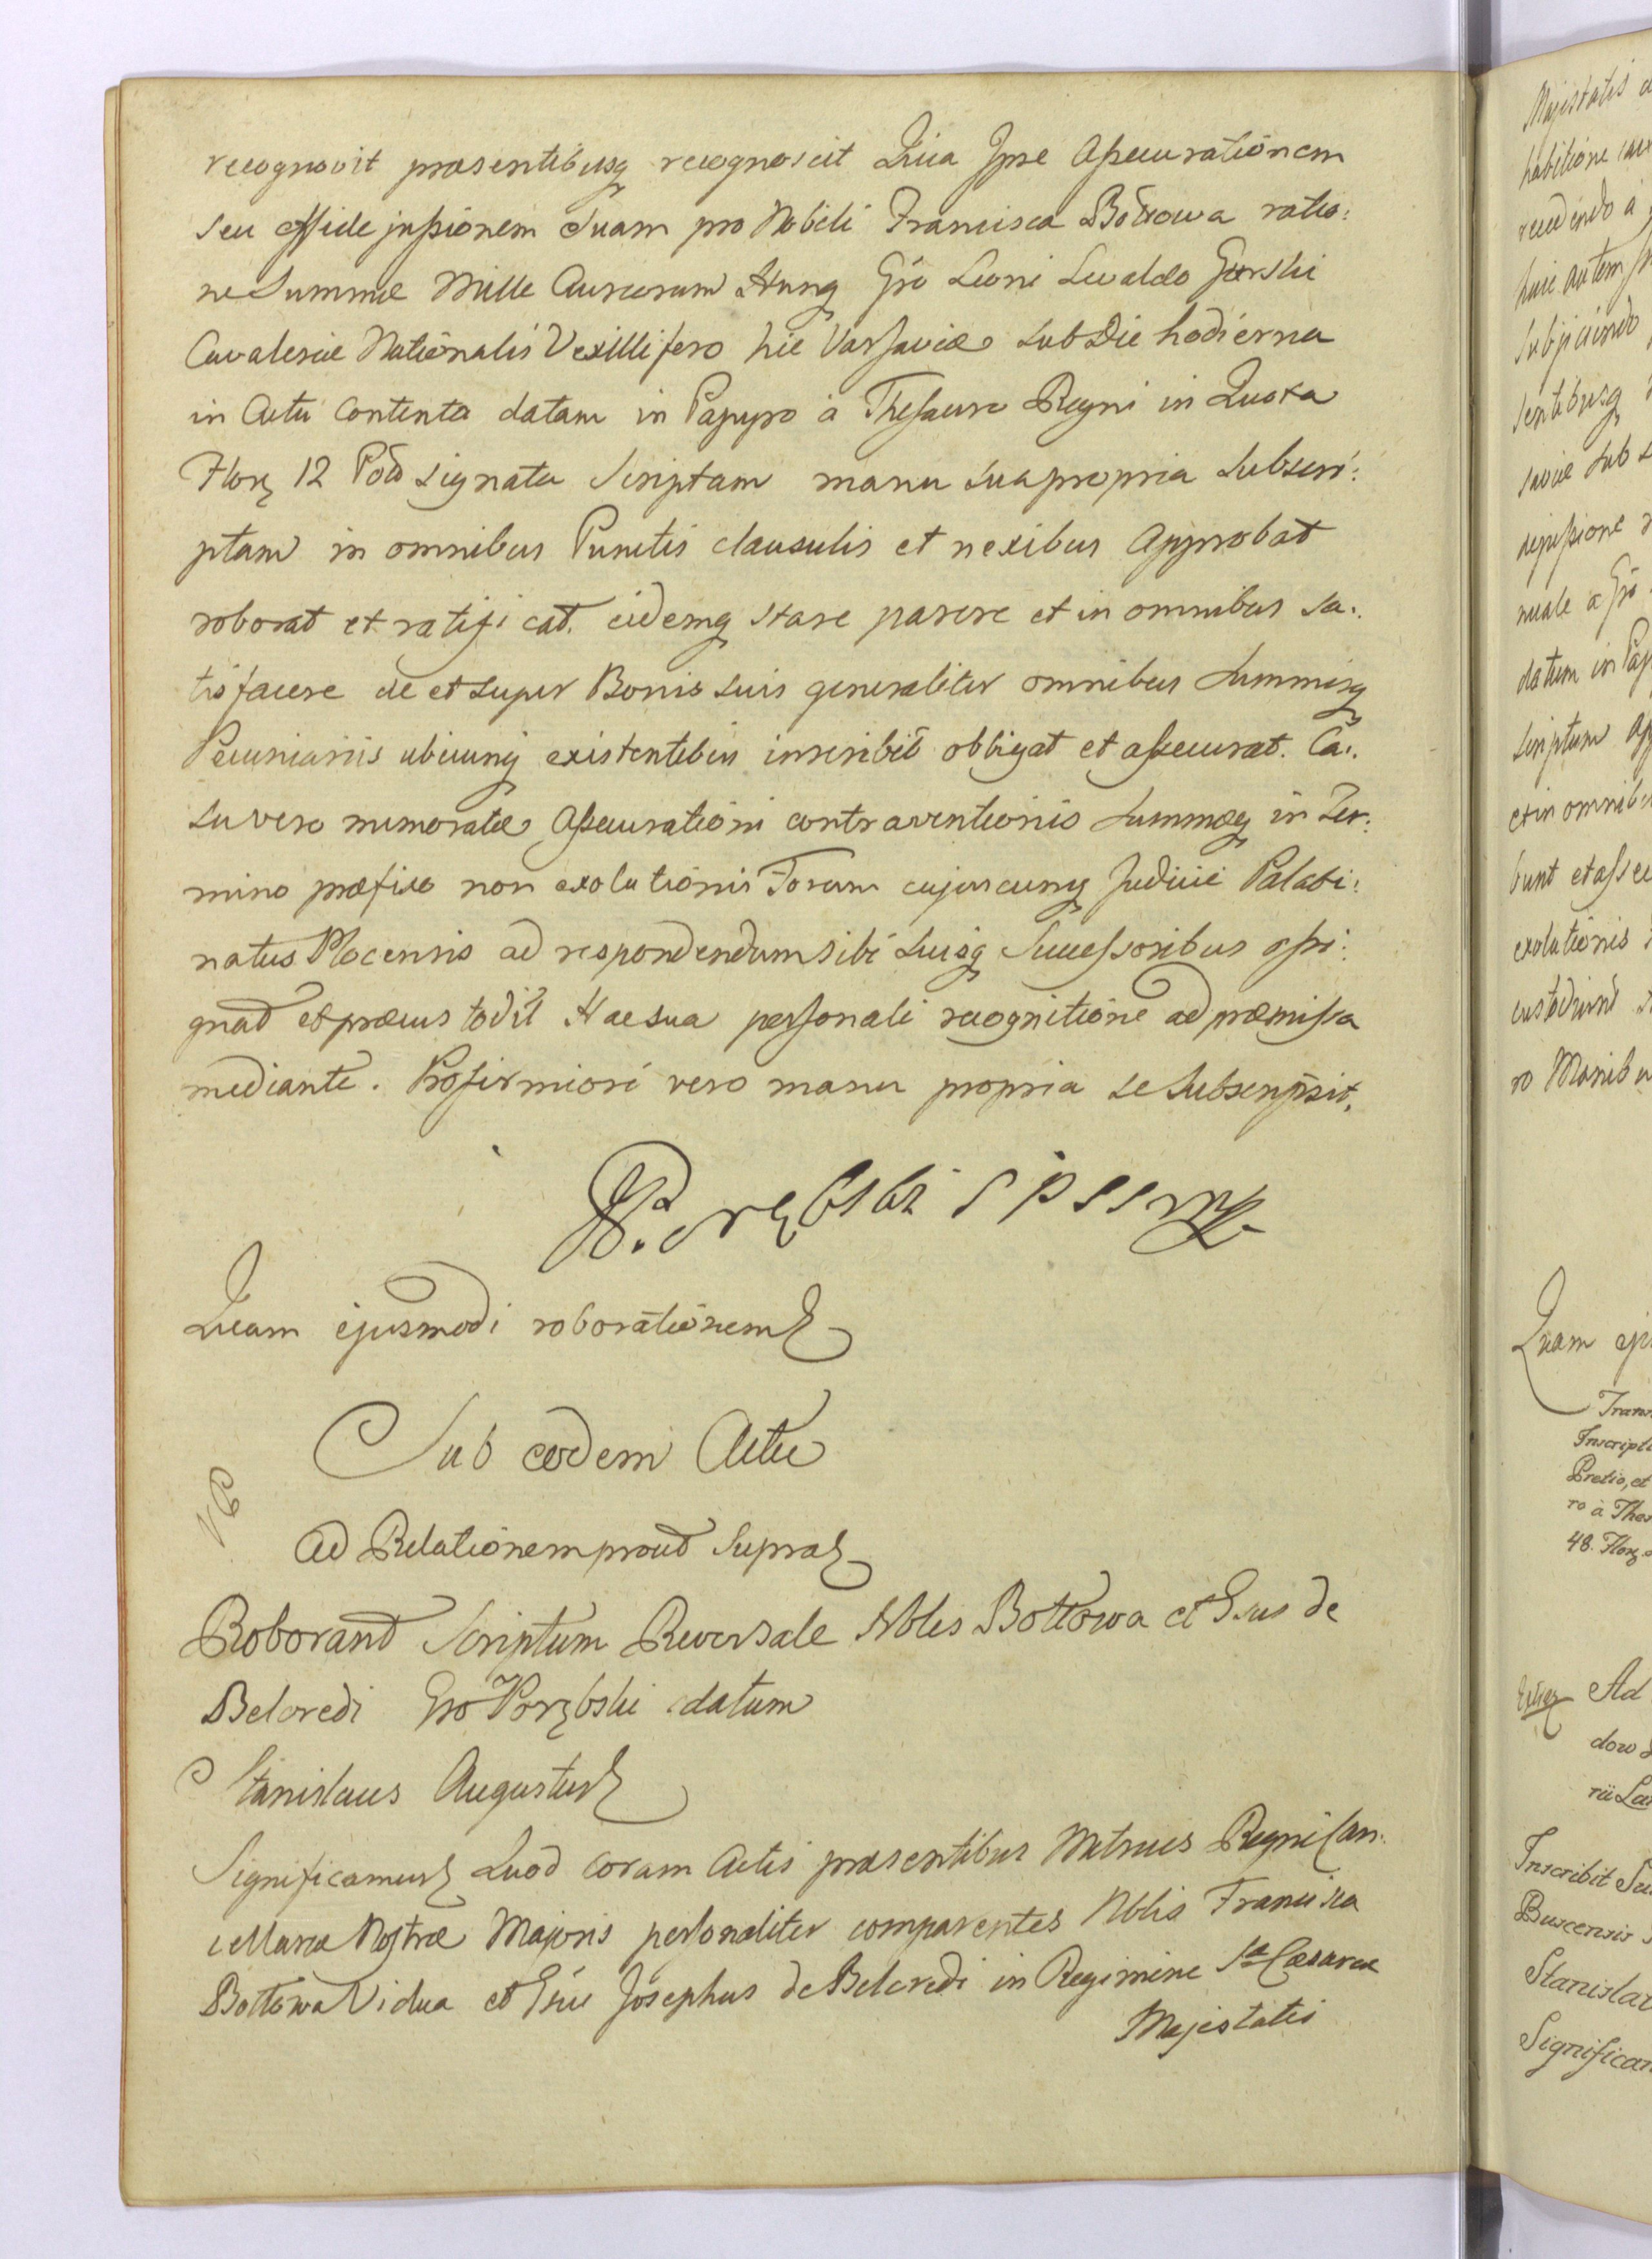 recognovit praesentibusq recognoscit Quia Ipse Assecurationem
seu effidejussionem Suam pro Nobili Francisca Bottowa ratio:
ne Summae Mille Aureorum Hung Gso Leoni Lewaldo Gorski
Cavaleriae Nationalis Vexillifero hic Varsaviae sub Die hodierna
in Actu Contenta datam in Papyro a Thesauro Regni in Quota
Flor 12 Pol signata Scriptam manu sua propria Subscri:
ptam in omnibus Punctis clausulis et nexibus Approbat
roborat et ratificat. eidemq stare parere et in omnibus sa:
tisfacere de et super Bonis suis generaliter omnibus Summisq
Pecuniariis ubicunq existentibus inscribit obligat et assecurat. Ca:
su vero memoratae Assecurationi contraventionis Summaeq in Ter:
mino praefixo non exolutionis Forum cujuscunq Judicii Palati:
natus Plocensis ad respondendum sibi suisq Successoribus assi:
gnat et praecustodit Hac sua personali recognitione ad praemissa
mediante. Pro firmiori vero manu propria se Subscripsit.
Porębski
Quam ejusmodi roborationem
Sub eodem Actu
Ad Relationem prout Supra
Roborant Scriptum Reversale Nbles Bottowa et Gsus de
Belcredi Gso Porębski datum
Stanislaus Augustus
Significamus Quod coram Actis praesentibus Metrices Regni Can:
cellariae Nostrae Majoris personaliter comparentes Nblis Francisca
Bottowa Vidua et Gsus Josephus de Belcredi in Regimine Sae Caesareae
Majestatis
Majestatis
Quam
Inscripti
Pretio, et
48. Flor
Ad
Inscribit
Buscensis